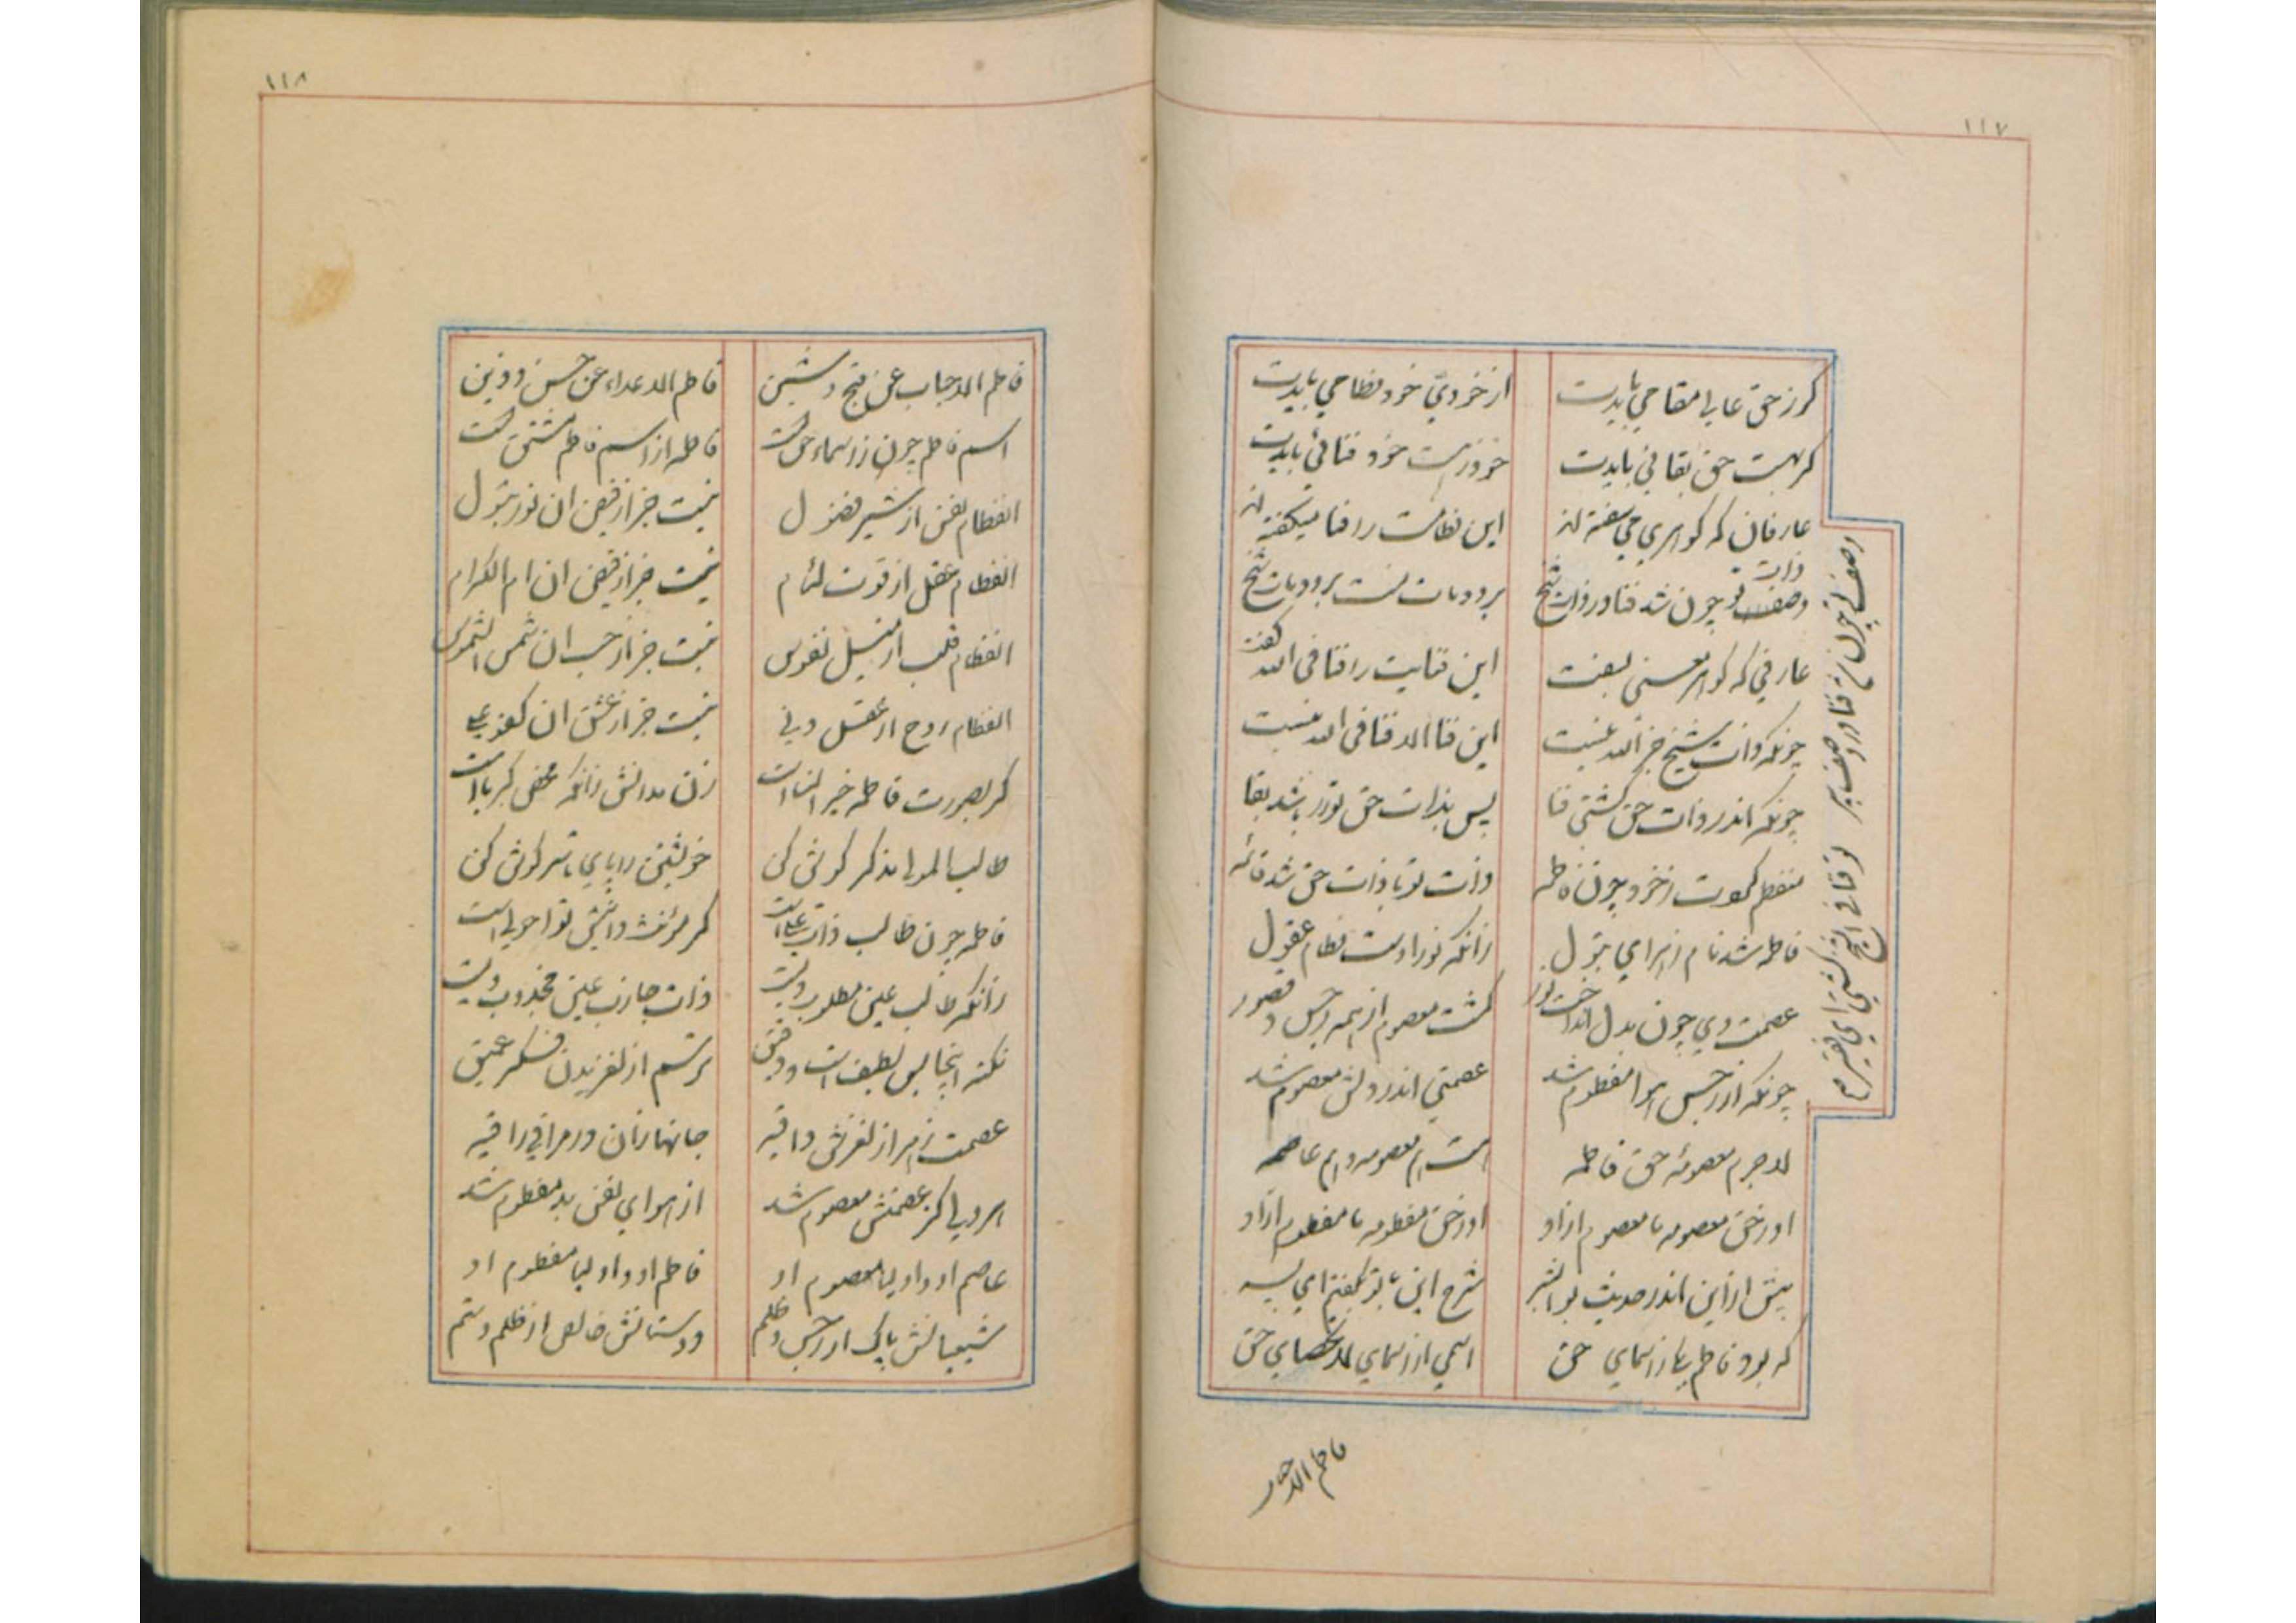 ١١٧
کر ز حق عالی مقامی بایدت
از خودیّ خود فطامی بایدت
کر بهست حق بقائی بایدت
خود ز هست خود فنائی بایدت
عارفان که کوهری می سفته اند
این فطامت را فنا میکفته اند
وصف تو چون شد فنا در ذات شیخ
ذات
عارفی که کوهر معنی بسفت
این فنایت را فنا فی الله کفت
چونکه ذات شیخ جز الله نیست
این فنا الا فنا فی الله نیست
چونکه اندر ذات حق کشتی فنا
پس بذات حق تو را باشد بقا
منفطم کمت ز خود چون فاطمه
ذات تو با ذات حق شد قائمه
فاطمه شد نام زهرای بتول
زانکه نور اوست فطام عقول
عصمت وی چون بدل انداخت نور
کشت معصوم از همه رجس و قصور
چونکه از رجس هوا مفطوم شد
عصمتی اندر دلش معصوم شد
لاجرم معصومه حق فاطمه
هست هم معصومه و هم عاصمه
او ز حق معصومه ما معصوم ازاو
او ز حق مفطومه ما مفطوم ازاو
پیش ازاین اندر حدیث بو البشر
شرح این با تو بگفتم ای پسر
که بود فاطم یکی ز اسمای حق
اسمی از اسمای لا تحصای حق
وصف تو چون شد فنا در وصف پیر
تو فنا فی الشیخ کشتی ای فقیر
فاطم الاحباب
١١٨
فاطم الاحباب عن قبح و شین
فاطم الاعداء عن حسن و زین
اسم فاطم چون ز اسماء حق است
فاطمه از اسم فاطم مشتق است
انفطام نفس از شیر فضول
نیست جز از فیض ان نور بتول
انفطام عقل از قوت لئام
نیست جز از فیض ان ام الکرام
انفطام قلب از میل نفوس
نیست جز از حب ان شمس الشموس
انفطام روح از عقل دنی
نیست جز از عشق ان کفو علی
کر بصورت فاطمه خیر النسا است
زن مدانش زانکه محض کبریا است
طالب المولی مذکر کوش کن
خویشتن را پای تا سر کوش کن
فاطمه چون طالب ذات علی است
کر مؤنث دانیش تو احولی است
زانکه طالب عین مطلوب ویست
ذات جاذب عین مجذوب ویست
نکته اینجا بس لطیف است و دقیق
ترسم از لغزیدن فکر عمیق
عصمت زهرا ز لغزش واقیه
جانهاتان در مراقی راقیه
هر دلی کز عصمتش معصوم شد
از هوای نفس بد مفطوم شد
عاصم او و اولیا معصوم او
فاطم او و اولیا مفطوم او
شیعیانش پاک از رجس و ظلم
دوستانش خالص از ظلم و ستم